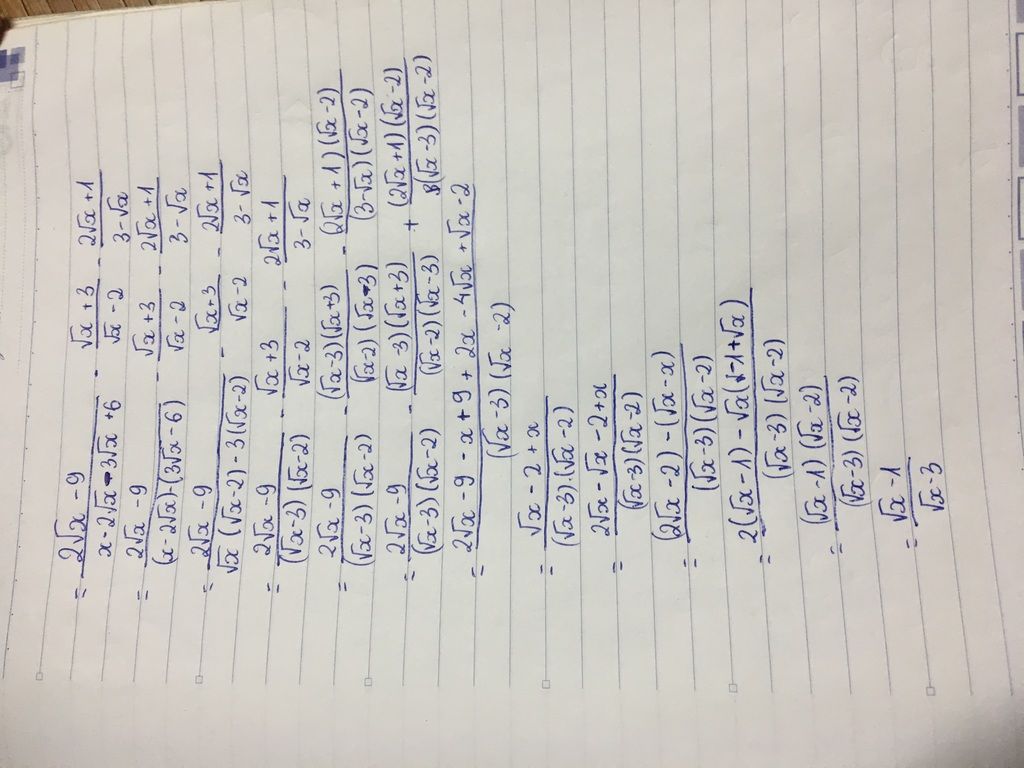 = (2√x - 9)/(x - 2√x - 3√x + 6) - (√x + 3)/(√x - 2) - (2√x + 1)/(3 - √x)
= (2√x - 9)/((x - 2√x) - (3√x - 6)) - (√x + 3)/(√x - 2) - (2√x + 1)/(3 - √x)
= (2√x - 9)/(√x (√x - 2) - 3(√x - 2)) - (√x + 3)/(√x - 2) - (2√x + 1)/(3 - √x)
= (2√x - 9)/((√x - 3)(√x - 2)) - (√x + 3)/(√x - 2) - (2√x + 1)/(3 - √x)
= (2√x - 9)/((√x - 3)(√x - 2)) - ((√x - 3)(√x + 3))/((√x - 2)(√x - 3)) - ((2√x + 1)(√x - 2))/((3 - √x)(√x - 2))
= (2√x - 9)/((√x - 3)(√x - 2)) - ((√x - 3)(√x + 3))/((√x - 2)(√x - 3)) + ((2√x + 1)(√x - 2))/((√x - 3)(√x - 2))
= (2√x - 9 - x + 9 + 2x - 4√x + √x - 2)/((√x - 3)(√x - 2))
= (√x - 2 + x)/((√x - 3).(√x - 2))
= (2√x - √x - 2 + x)/((√x - 3)(√x - 2))
= ((2√x - 2) - (√x - x))/((√x - 3)(√x - 2))
= (2(√x - 1) - √x(-1 + √x))/((√x - 3)(√x - 2))
= ((√x - 1)(√x - 2))/((√x - 3)(√x - 2))
= (√x - 1)/(√x - 3)